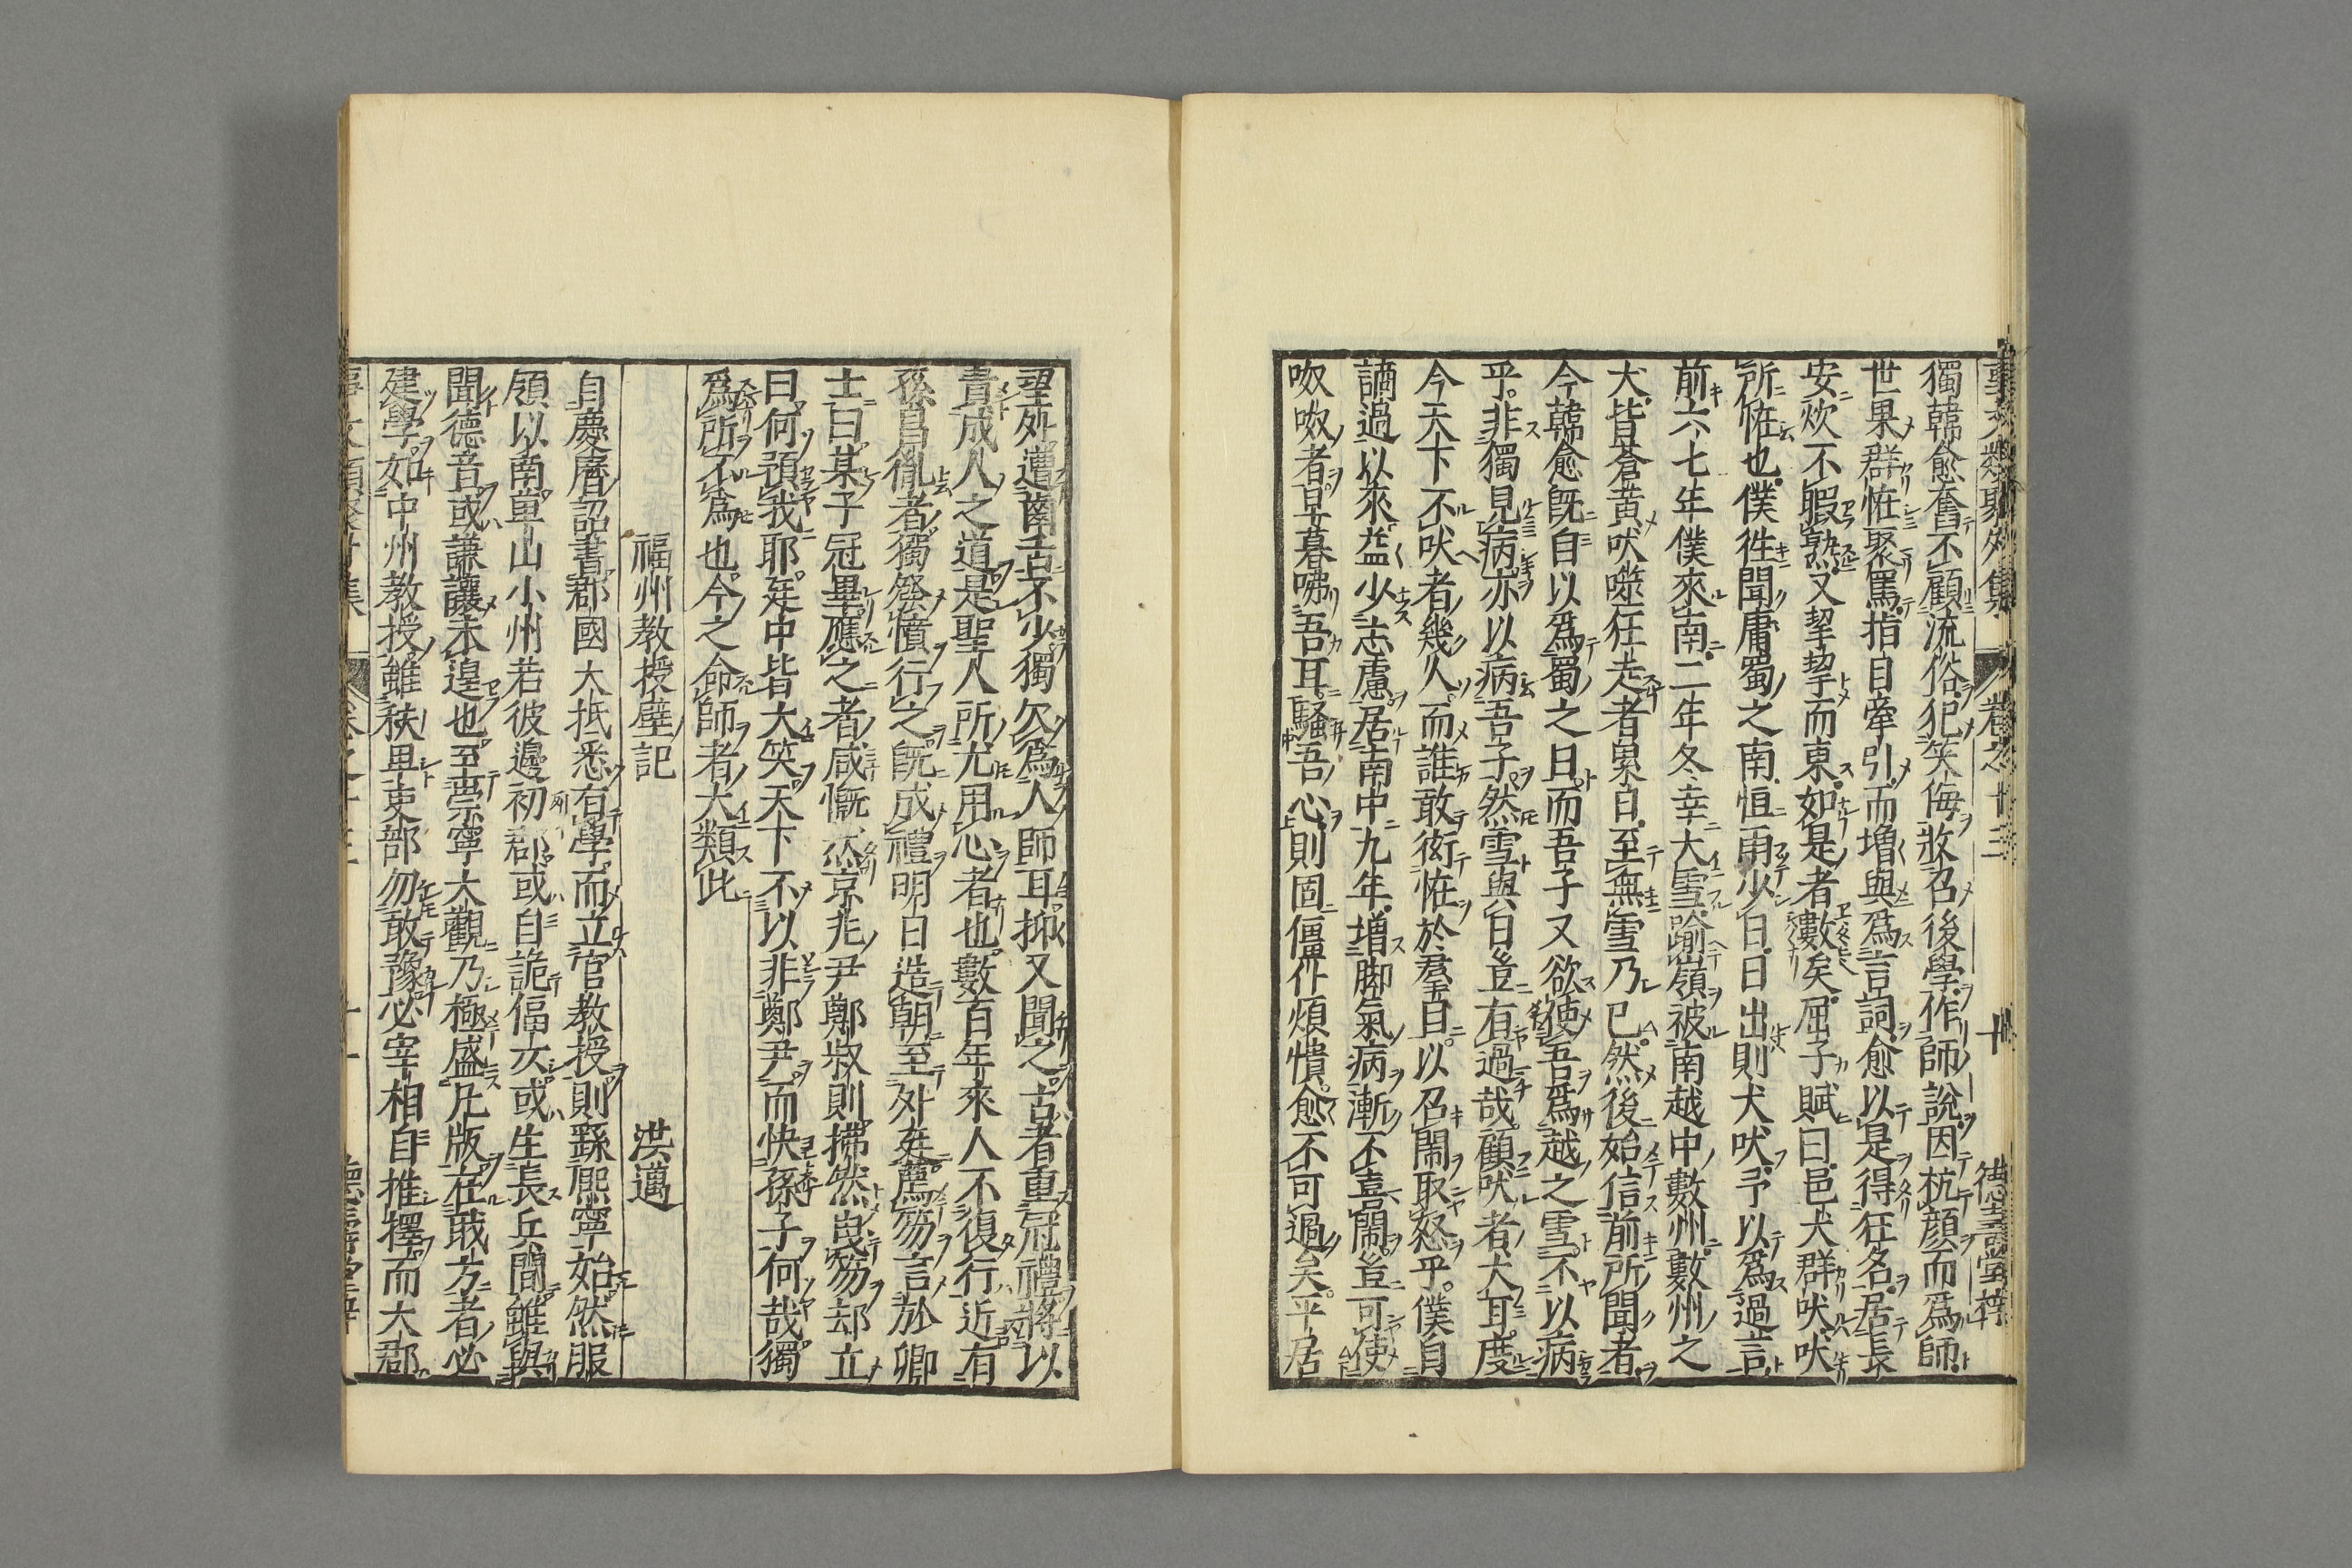 獨韓愈奮不顧流俗犯笑侮收召後學作師說因抗顔而爲師
世果群恠聚罵指目牽引而増與爲言詞愈以是得狂名居長
安炊不暇熟又挈挈而東如是者數矣屈子賦曰邑犬群吠吠
所恠也僕徃聞庸蜀之南恒雨少日日出則犬吠予以爲過言
前六七年僕來南二年冬幸大雪踰嶺被南越中數州數州之
犬皆蒼黄吠噬狂走者累日至無雪乃已然後始信前所聞者
今韓愈旣自以爲蜀之日而吾子又欲使吾爲越之雪不以病
乎非獨見病亦以病吾子然雪與日豈有過哉顧吠者犬耳度
今天下不吠者幾人而誰敢衒恠於羣目以召閙取怒乎僕自
謫過以來益少志慮居南中九年増脚氣病漸不喜閙豈可使
呶呶者早暮咈吾耳騷吾心則固僵仆煩憒愈不可過矣平居
望外遭齒舌不少獨欠爲人師耳抑又聞之古者重冠禮將以
責成人之道是聖人所尤用心者也數百年來人不復行近有
孫昌胤者獨發憤行之旣成禮明日造朝至外廷薦笏言於卿
士曰某子冠畢應之者咸憮然京兆尹鄭叔則怫然曳笏却立
曰何預我耶廷中皆大笑天下不以非鄭尹而快孫子何哉獨
爲所不爲也今之命師者大類此
福州教授壁記　洪邁
自慶曆詔書郡國大抵悉有學而立官教授則繇熈寧始然服
領以南單山小州若彼邊初郡或自詭偪仄或生長兵間雖與
聞德音或謙讓未遑也至崇寧大觀乃極盛凡版在職方者必
建學如中州教授雖秩卑吏部勿敢豫必宰相自推擇而大郡